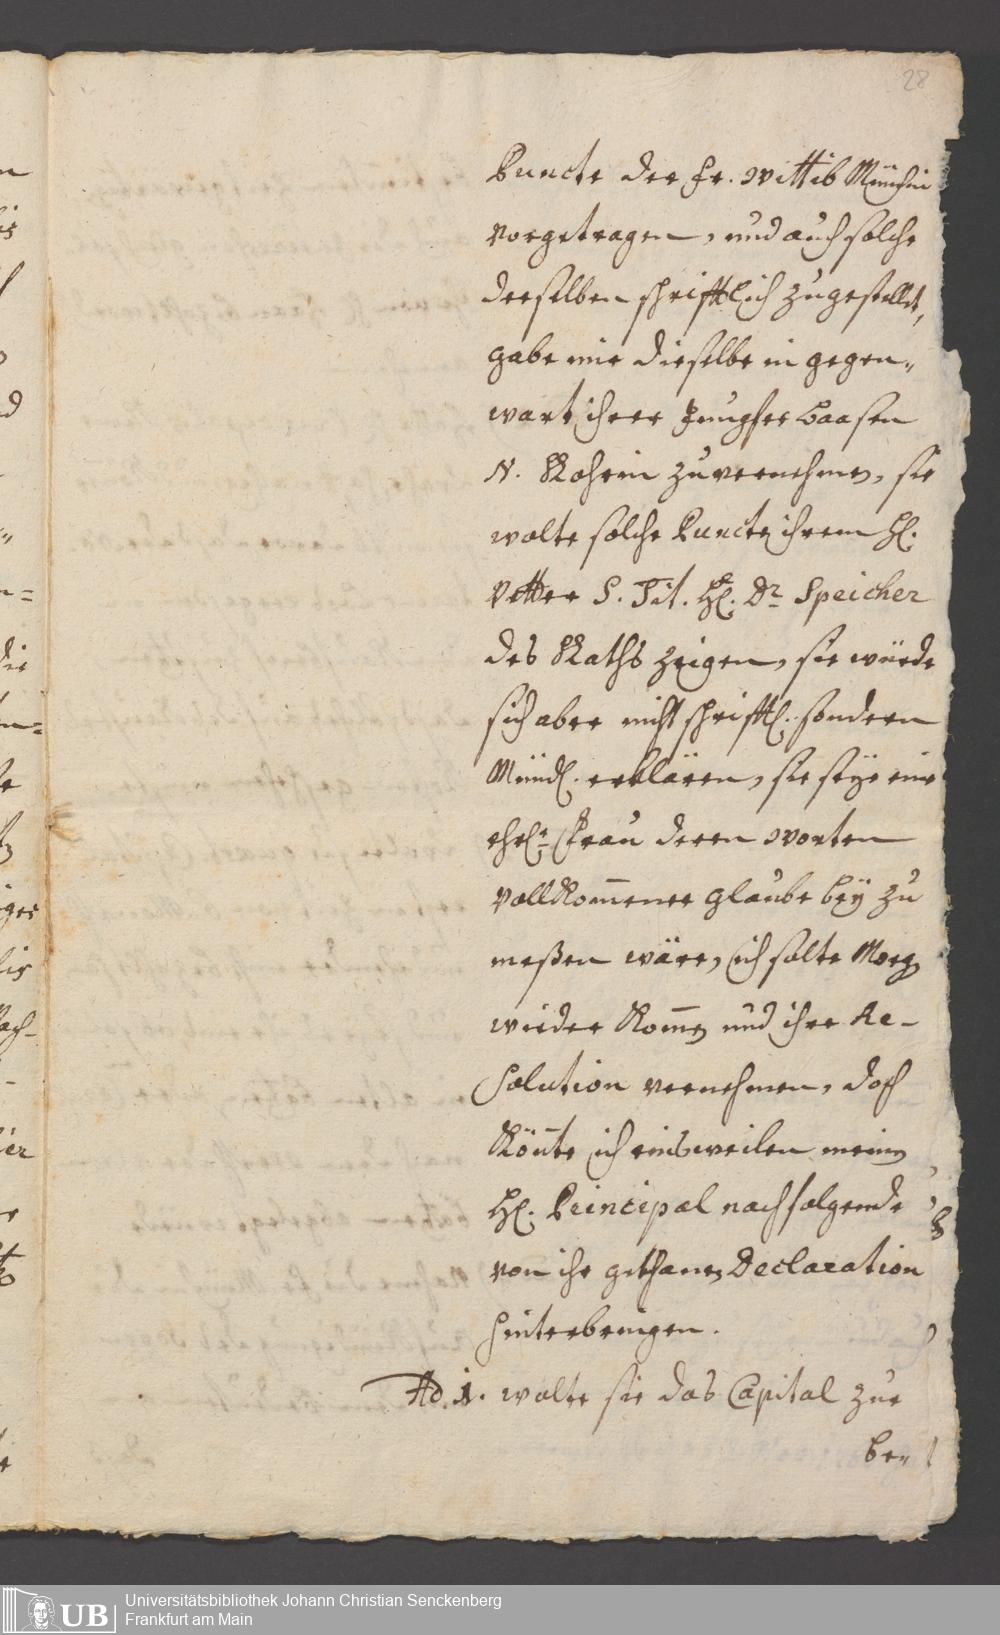 28
Puncte der Fr. Wittib Münchin
vorgetragen, und auch solche
derselben schrifftlich zugestellt,
gabe mir dieselbe in gegen„
wart ihrer Jungfer Baasen
N. Kohrin zuvernehmen, sie
wolte solche Puncte ihrem H.
Vetter S. Tit. H. Dr Speicher
des Raths zeigen, sie würde
sich aber nicht schrifftl. sondern
Mündl. erklären, sie seye eine
ehrl. Frau deren Worten
vollkom̄ener glaube beÿ zu
meßen wäre, ich solte Morg
wieder kom̄en und ihre Re-
solution vernehmen, doch
kön̄te ich einsweilen meinem
H. Principal nachfolgende
von ihr gethane Declaration
hinterbringen.
Ad. 1. wolte sie das Capital zur
be„
UB Universitätsbibliothek Johann Christian Senckenberg
Frankfurt am Main